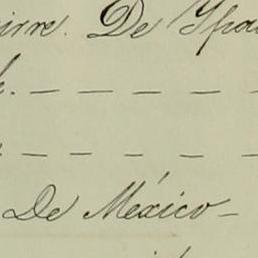 irre. De Ypa
. — — — — —
— — — — —
De México —